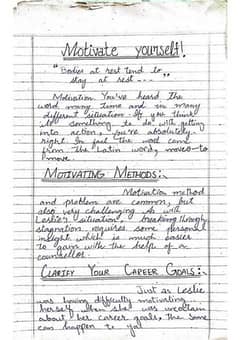 Motivate yourself!
"Bodies at rest tend to
stay at rest ---"
Motivation. You've heard the
word many time and in many
different situation. If you think
it something to do with getting
into action, you're absolutely
right. In fact the word came
from the Latin word, moveo-to
move.
MOTIVATING METHODS:-
Motivation method
and problem are common, but
also very challenging. As with
Leslie's situation, breaking through
stagnation requires some personal
insight which is much easier
to gain with the help of a
counsellor.
CLARIFY YOUR CAREER GOALS:-
Just as Leslie
was having difficulty motivating
herself when she was uncertain
about her career goals, the same
can happen to you